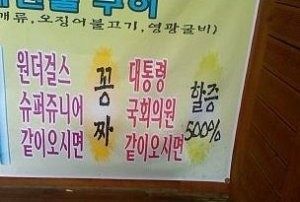 개류, 오징어불고기, 영광굴비)
원더걸스
슈퍼쥬니어
같이오시면
꽁짜
대통령
국회의원
같이오시면
할증
500%